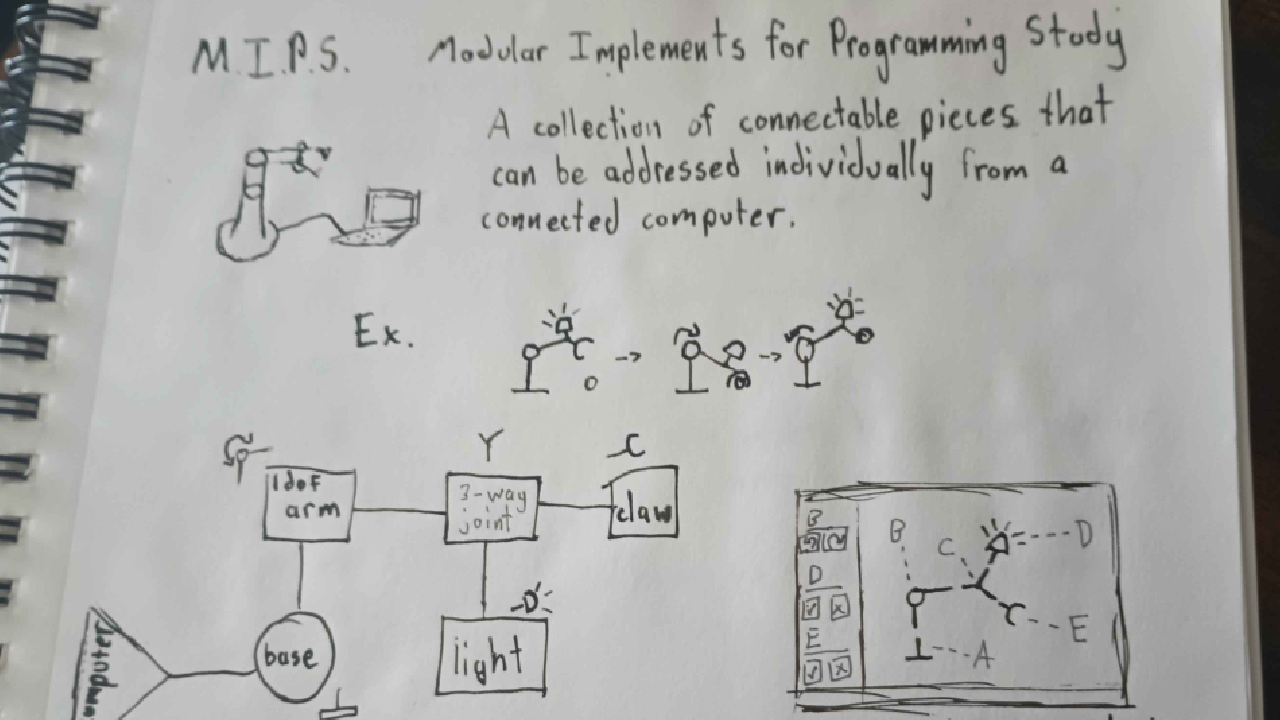 M.I.P.S. Modular Implements for Programming Study
A collection of connectable pieces that
can be addressed individually from a
connected computer.
Ex.
1 dof
arm
3-way
joint
claw
computer
base
light
B
D
E
B
C
D
E
A